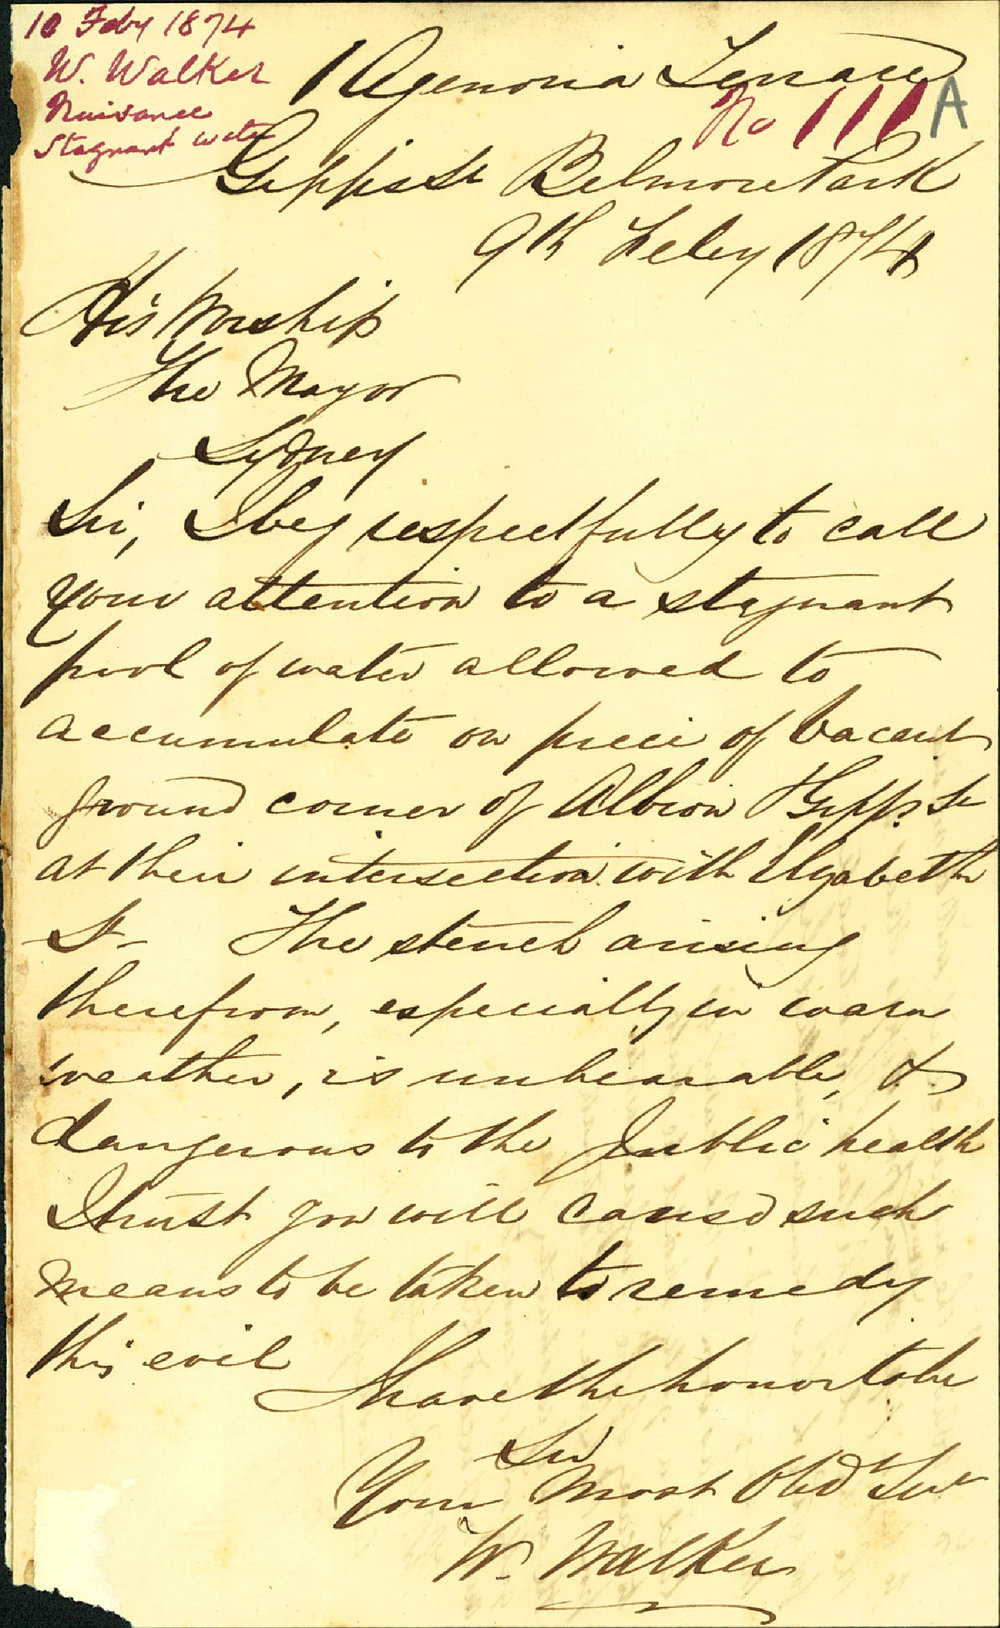 10 Feby 1874
W. Walker
Nuisance
Stagnant wate
No 111 A
1 Agenoria Terrace
Gipps St Belmore Park
9th Feby 1874
His Worship
The Mayor
Sydney
Sir, I beg respectfully to call
your attention to a stagnant
pool of water allowed to
accumulate on piece of vacant
ground corner of Albion & Gipps St
at their intersection with Elizabeth
St – The stench arising
therefrom, especially in warm
weather, is unbearable, &
dangerous to the public health
I trust you will cause such
means to be taken to remedy
this evil
I have the honor to be
Sir
Your Most Obdt Svt
W. Walker